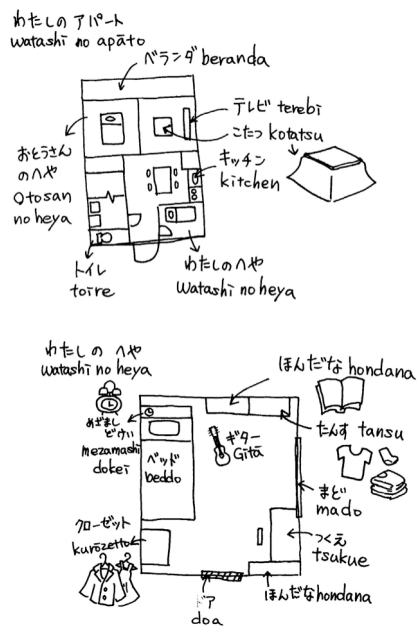 わたしの アパート
watashi no apāto
ベランダ beranda
テレビ terebi
こたつ kotatsu
おとうさん
のへや
otosan
no heya
キッチン
kitchen
トイレ
toire
わたしのへや
watashi no heya
わたしの へや
watashi no heya
ほんだな hondana
めざまし
どけい
mezamashi
dokei
ベッド
beddo
ギター
Gitā
たんす tansu
まど
mado
クローゼット
kurōzetto
つくえ
tsukue
ドア
doa
ほんだな hondana